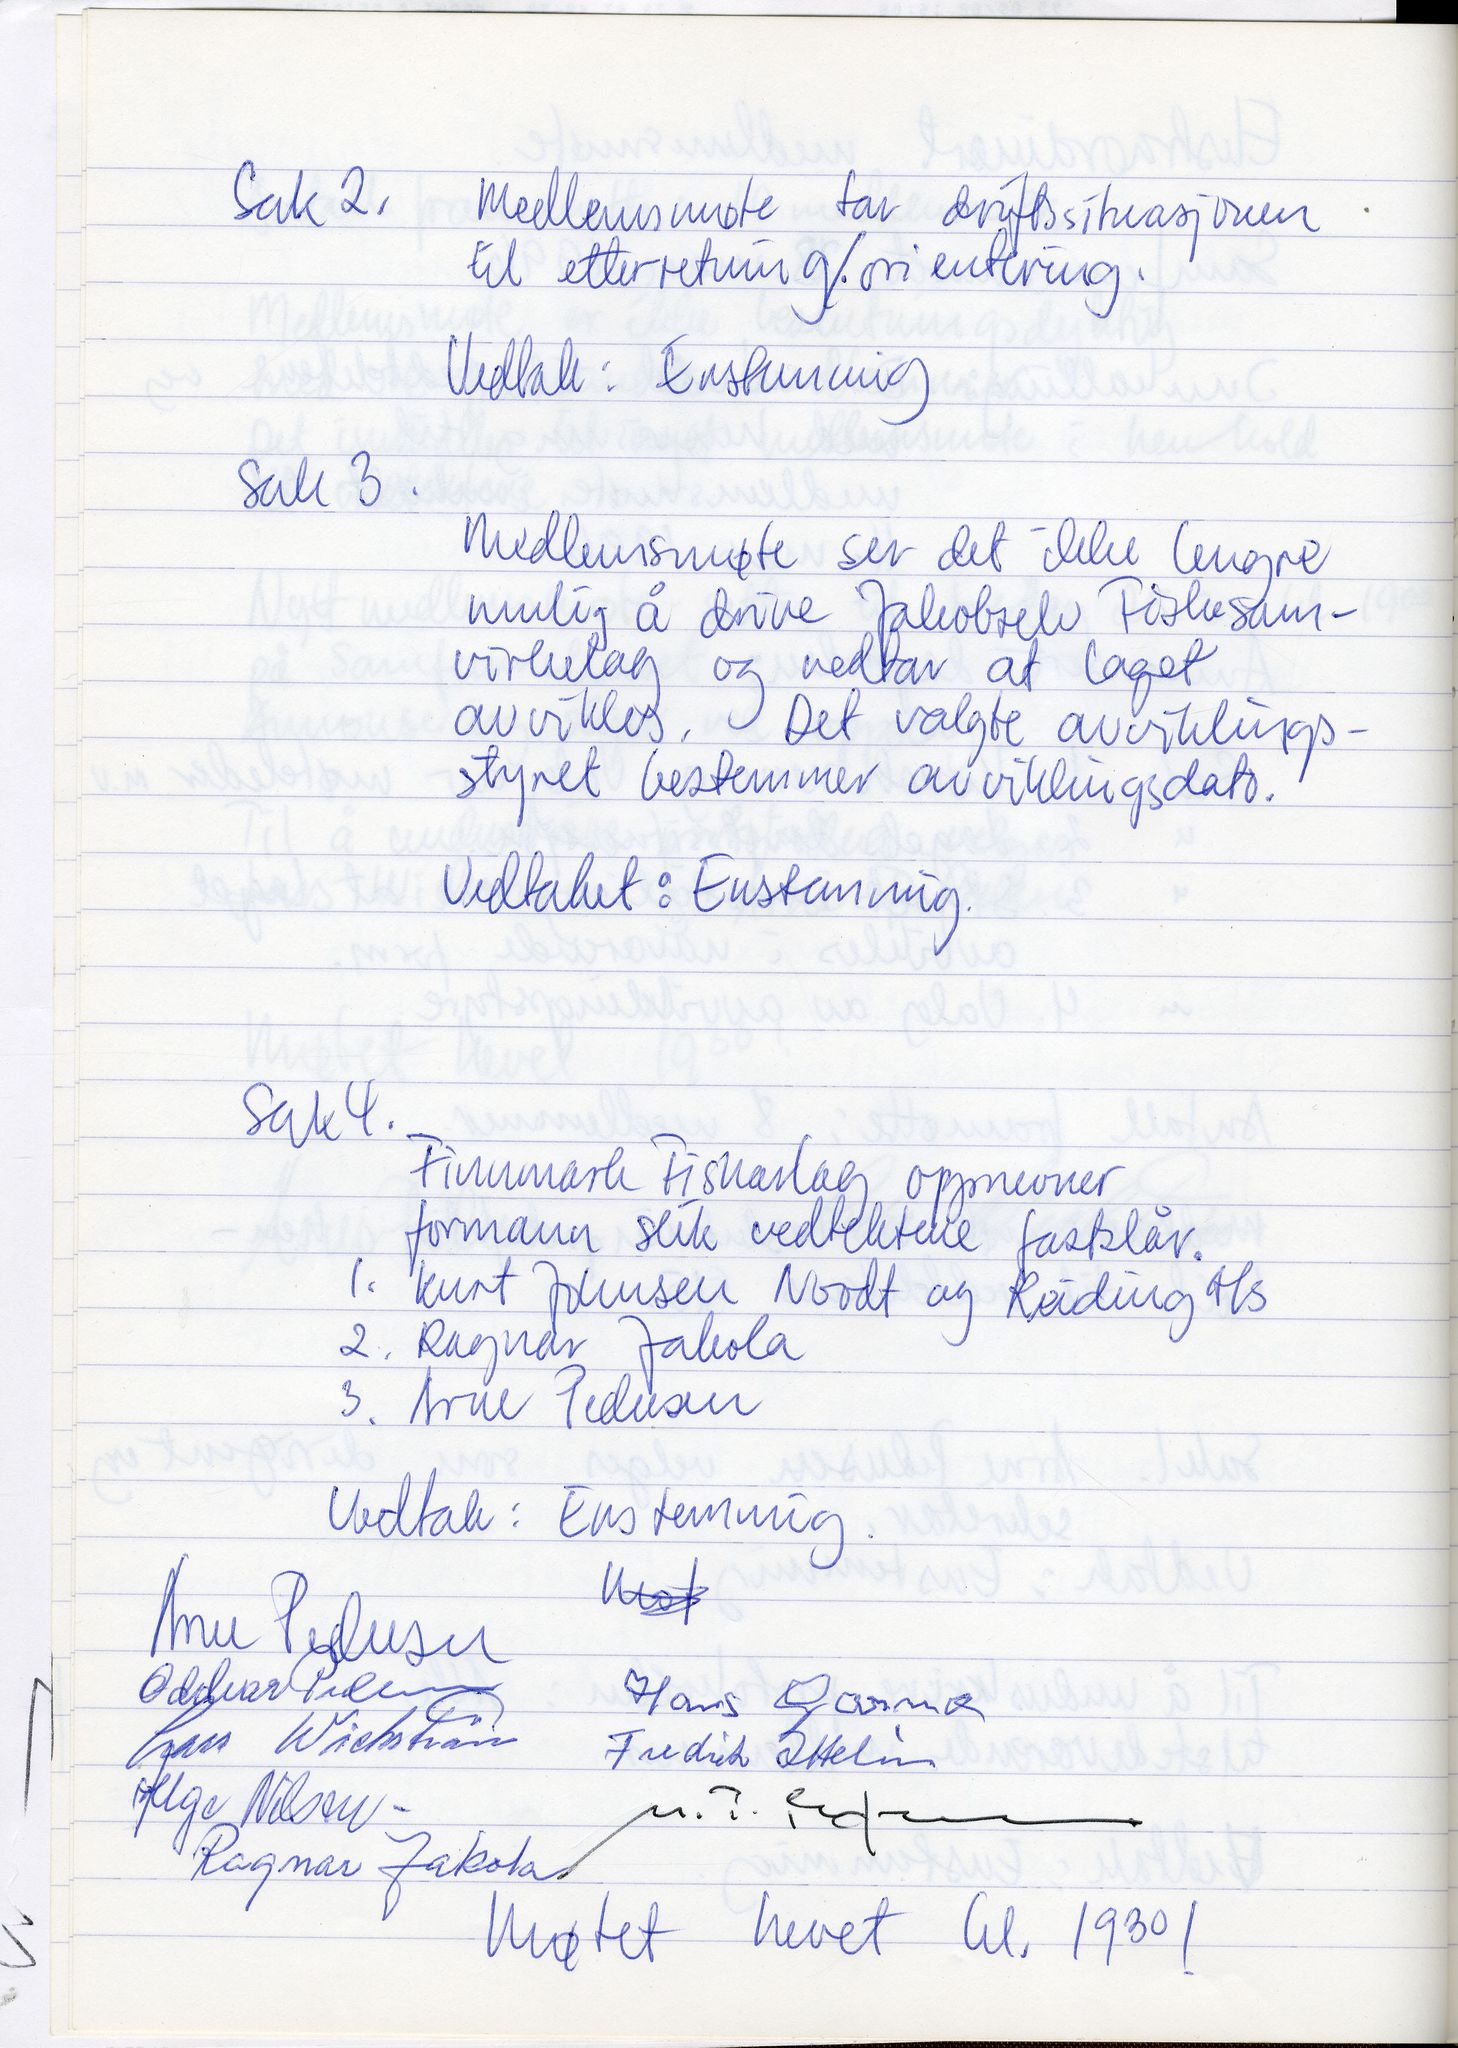 Sak 2. Medlemsmøte tar driftssituasjonen
til etterretning/orientering.
Vedtak: Enstemmig
Sak 3.
Medlemsmøte ser det ikke lengre
mulig å drive Jakobselv Fiskesam-
virkelag og vedtar at laget
avvikles. Det valgte avviklings-
styret bestemmer avviklingsdato.
Vedtaket: Enstemmig.
Sak 4.
Finnmark Fiskarlag oppnevner
formann slik vedtektene fastslår.
1. Kurt Johnsen Nordt og Räding A/s
2. Ragnar Jakola
3. Arne Pedersen
Vedtak: Enstemmig.
Arne Pedersen
Oddvar Pedersen Hans
Wickstrøm Fredrik
Helge Nilsen
Ragnar Jakola
Møtet hevet kl. 1930!